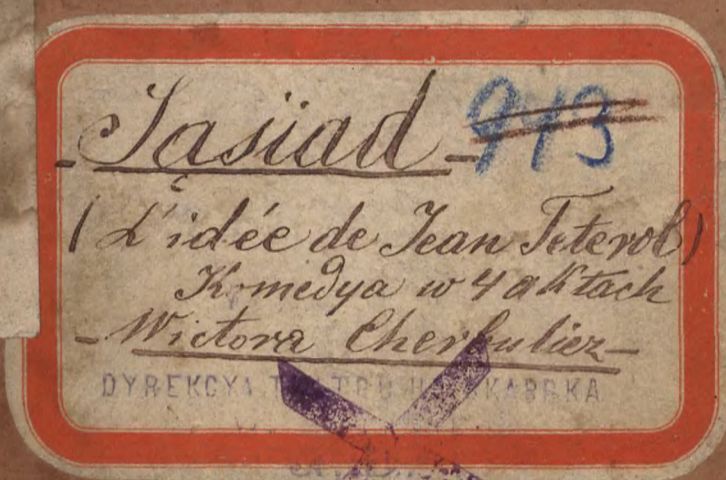 - Sąsiad - 943
(L'idée de Jean Teterol)
Komedya w 4 aktach
- Wictora Cherbuliez -
DYREKCYA TEATRU SKARBKA